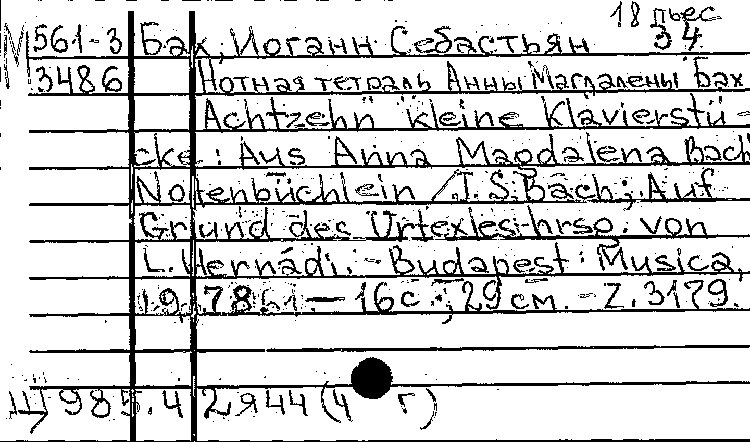 18 пьес
М 561-3 Бах, Иоганн Себастьян 34
3486 Нотная тетрадь Анны Магдалены Бах
Achtzehn kleine Klavierstü-
cke: Aus Anna Magdalena Bach
Notenbüchlein / J. S. Bach; Auf
Grund des Urtextes hrsg. von
L. Hernádi. - Budapest: Musica,
16 с.; 29 см. - Z. 3179.
Щ 985.42я44 (4 г)